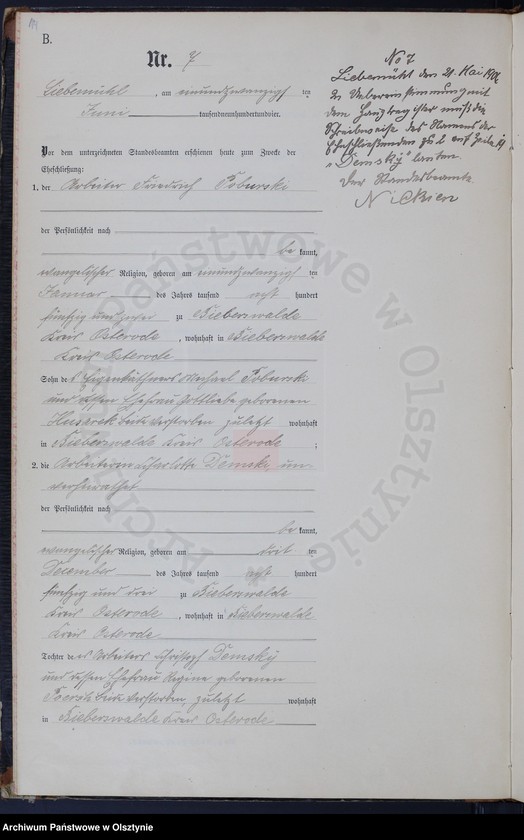 B.
Nr. 7
Liebemühl, am einundzwanzigsten ten
Juni tausendneunhundertundvier.
Vor dem unterzeichneten Standesbeamten erschienen heute zum Zwecke der
Eheschließung:
1. der Arbeiter Friedrich Poburski
der Persönlichkeit nach
be kannt,
evangelischer Religion, geboren am einundzwanzigsten ten
Januar des Jahres tausend acht hundert
fünfzig und zu Bieberswalde
Kreis Osterode, wohnhaft in Bieberswalde
Kreis Osterode
Sohn des Eigenkäthners Michael Poburski
und dessen Ehefrau Gottliebe geborenen
beide verstorben zuletzt wohnhaft
in Bieberswalde Kreis Osterode ;
2. die Arbeiterin Charlotte Demski un-
verheirathet
der Persönlichkeit nach
be kannt,
evangelischer Religion, geboren am drit ten
December des Jahres tausend acht hundert
fünfzig und drei zu Bieberswalde
Kreis Osterode, wohnhaft in Bieberswalde
Kreis Osterode
Tochter des Arbeiters Christoph Demsky
und dessen Ehefrau Regine geborenen
beide verstorben, zuletzt wohnhaft
in Bieberswalde Kreis Osterode
No 7
Liebemühl den 21. Mai
In Uebereinstimmung mit
dem Hauptregister muß die
Schreibweise des Namens der
Eheschließenden zu 2 auf Zeile
"Demsky" lauten.
Der Standesbeamte
Archiwum Państwowe w Olsztynie
Archiwum Państwowe w Olsztynie